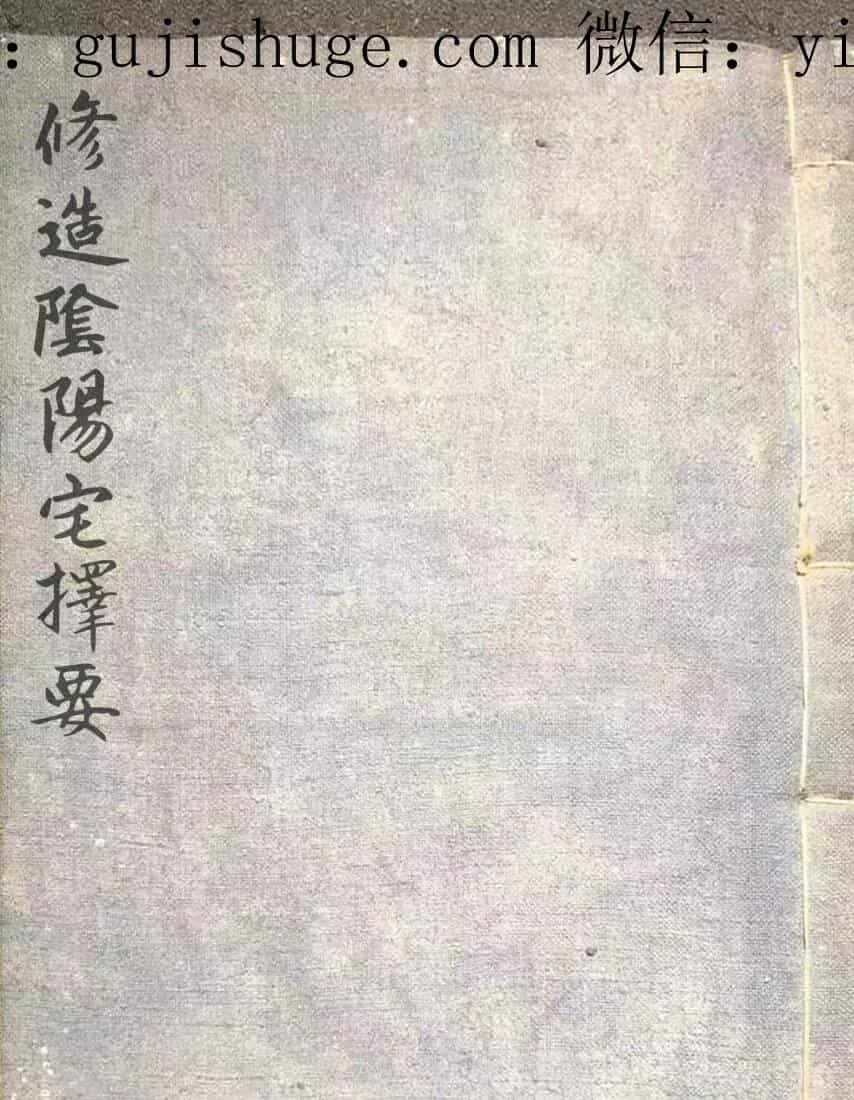 ：gujishuge.com 微信：yi
修造陰陽宅擇要